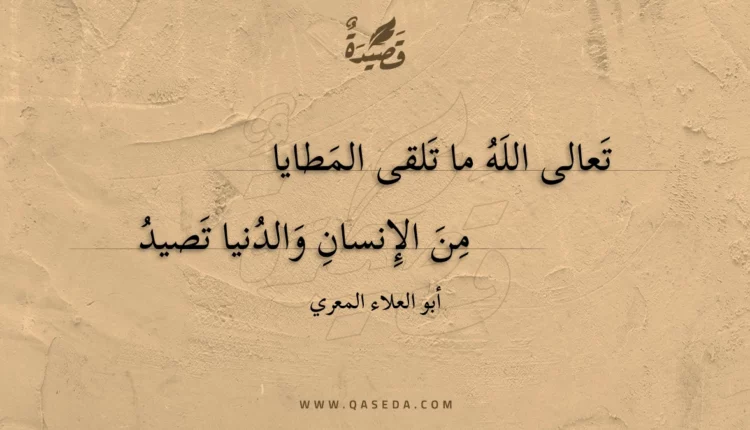 قَصِيدَةٌ
تَعالى اللَهُ ما تَلقى المَطايا
مِنَ الإِنسانِ وَالدُنيا تَصيدُ
أبو العلاء المعري
WWW.QASEDA.COM